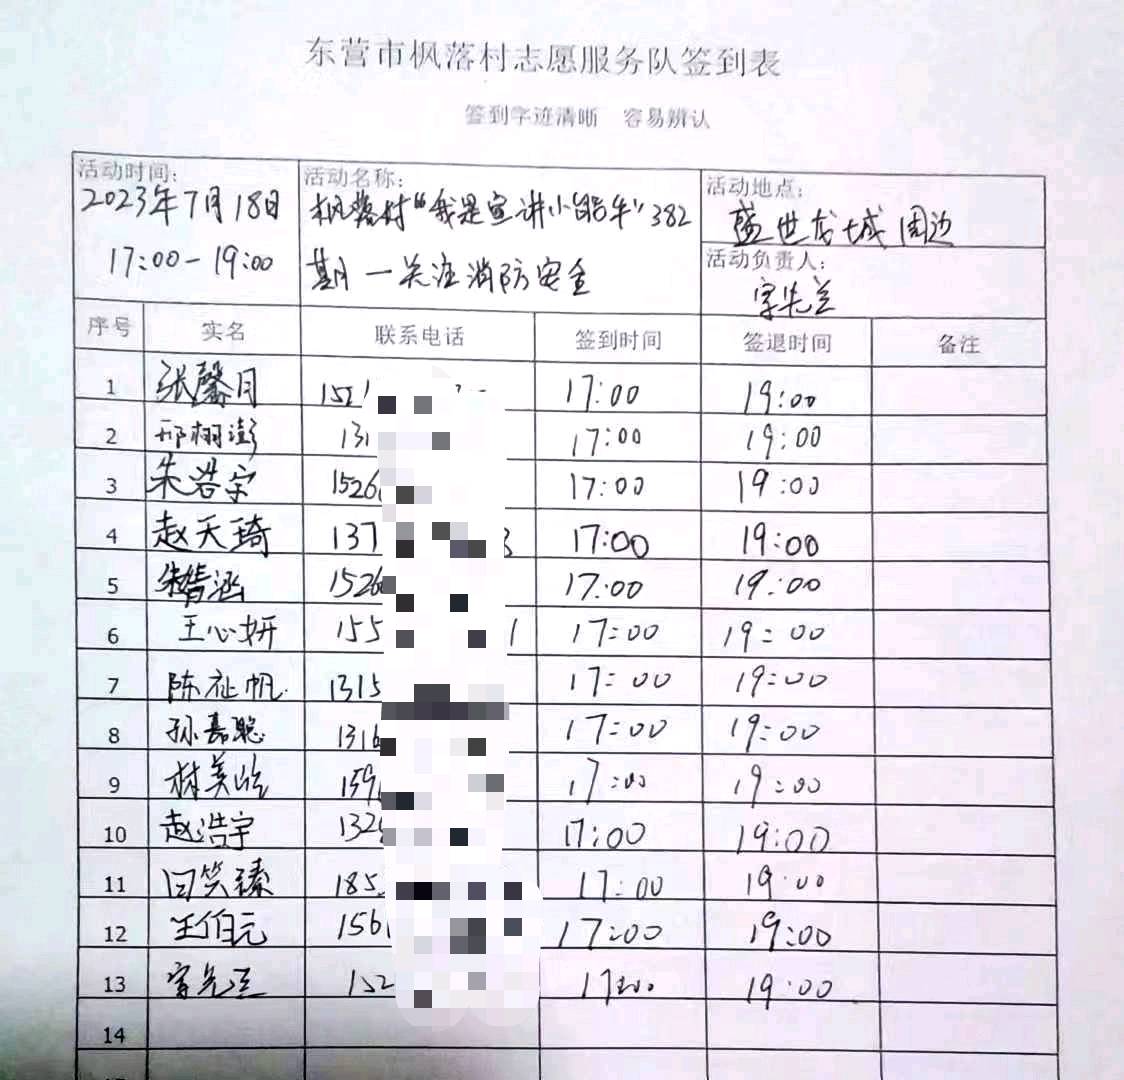 东营市枫落村志愿服务队签到表
签到字迹清晰 容易辨认
活动时间:
2023年7月18日
17:00-19:00
活动名称:
枫落村“我是宣讲小能手”382
期—关注消防安全
活动地点:
盛世龙城周边
活动负责人:
序号 实名 联系电话 签到时间 签退时间 备注
1 张馨月 152 17:00 19:00
2 邢栩澎 131 17:00 19:00
3 朱浩宇 1526 17:00 19:00
4 赵天琦 137 3 17:00 19:00
5 1526 17:00 19:00
6 王心妍 155 1 17:00 19:00
7 陈祉帆 1315 17:00 19:00
8 孙嘉聪 1316 17:00 19:00
9 159 17:00 19:00
10 赵浩宇 132 17:00 19:00
11 185 17:00 19:00
12 王伯元 156 17:00 19:00
13 152 17:00 19:00
14